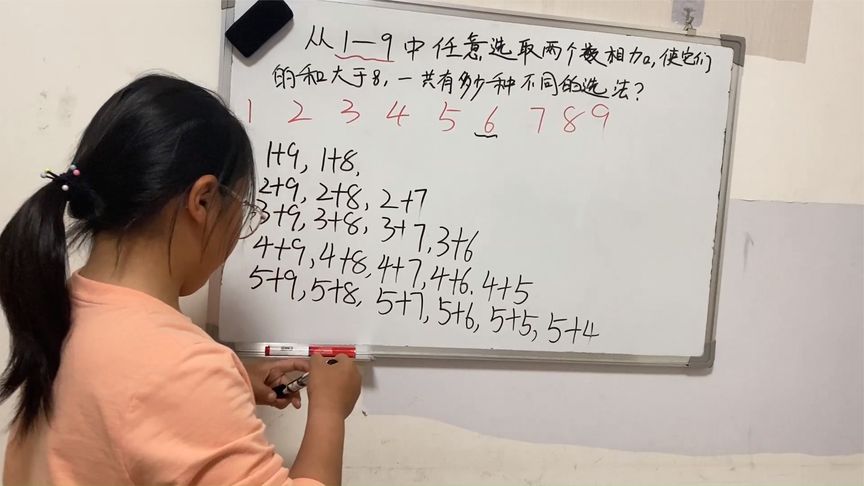 从1—9中任意选取两个数相加,使它们
的和大于8,一共有多少种不同的选法?
1 2 3 4 5 6 7 8 9
1+9, 1+8,
2+9, 2+8, 2+7
3+9, 3+8, 3+7, 3+6
4+9, 4+8, 4+7, 4+6, 4+5
5+9, 5+8, 5+7, 5+6, 5+5, 5+4